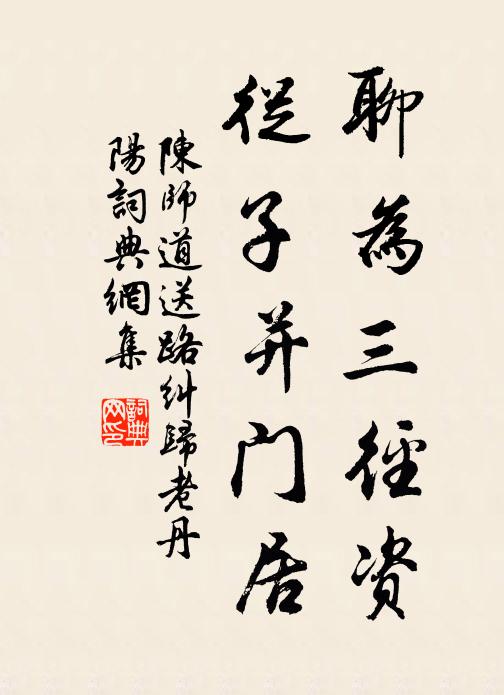 聊為三徑資
從子并门居
陳師道送路糾歸老丹
陽詞典網集
詞典
网印